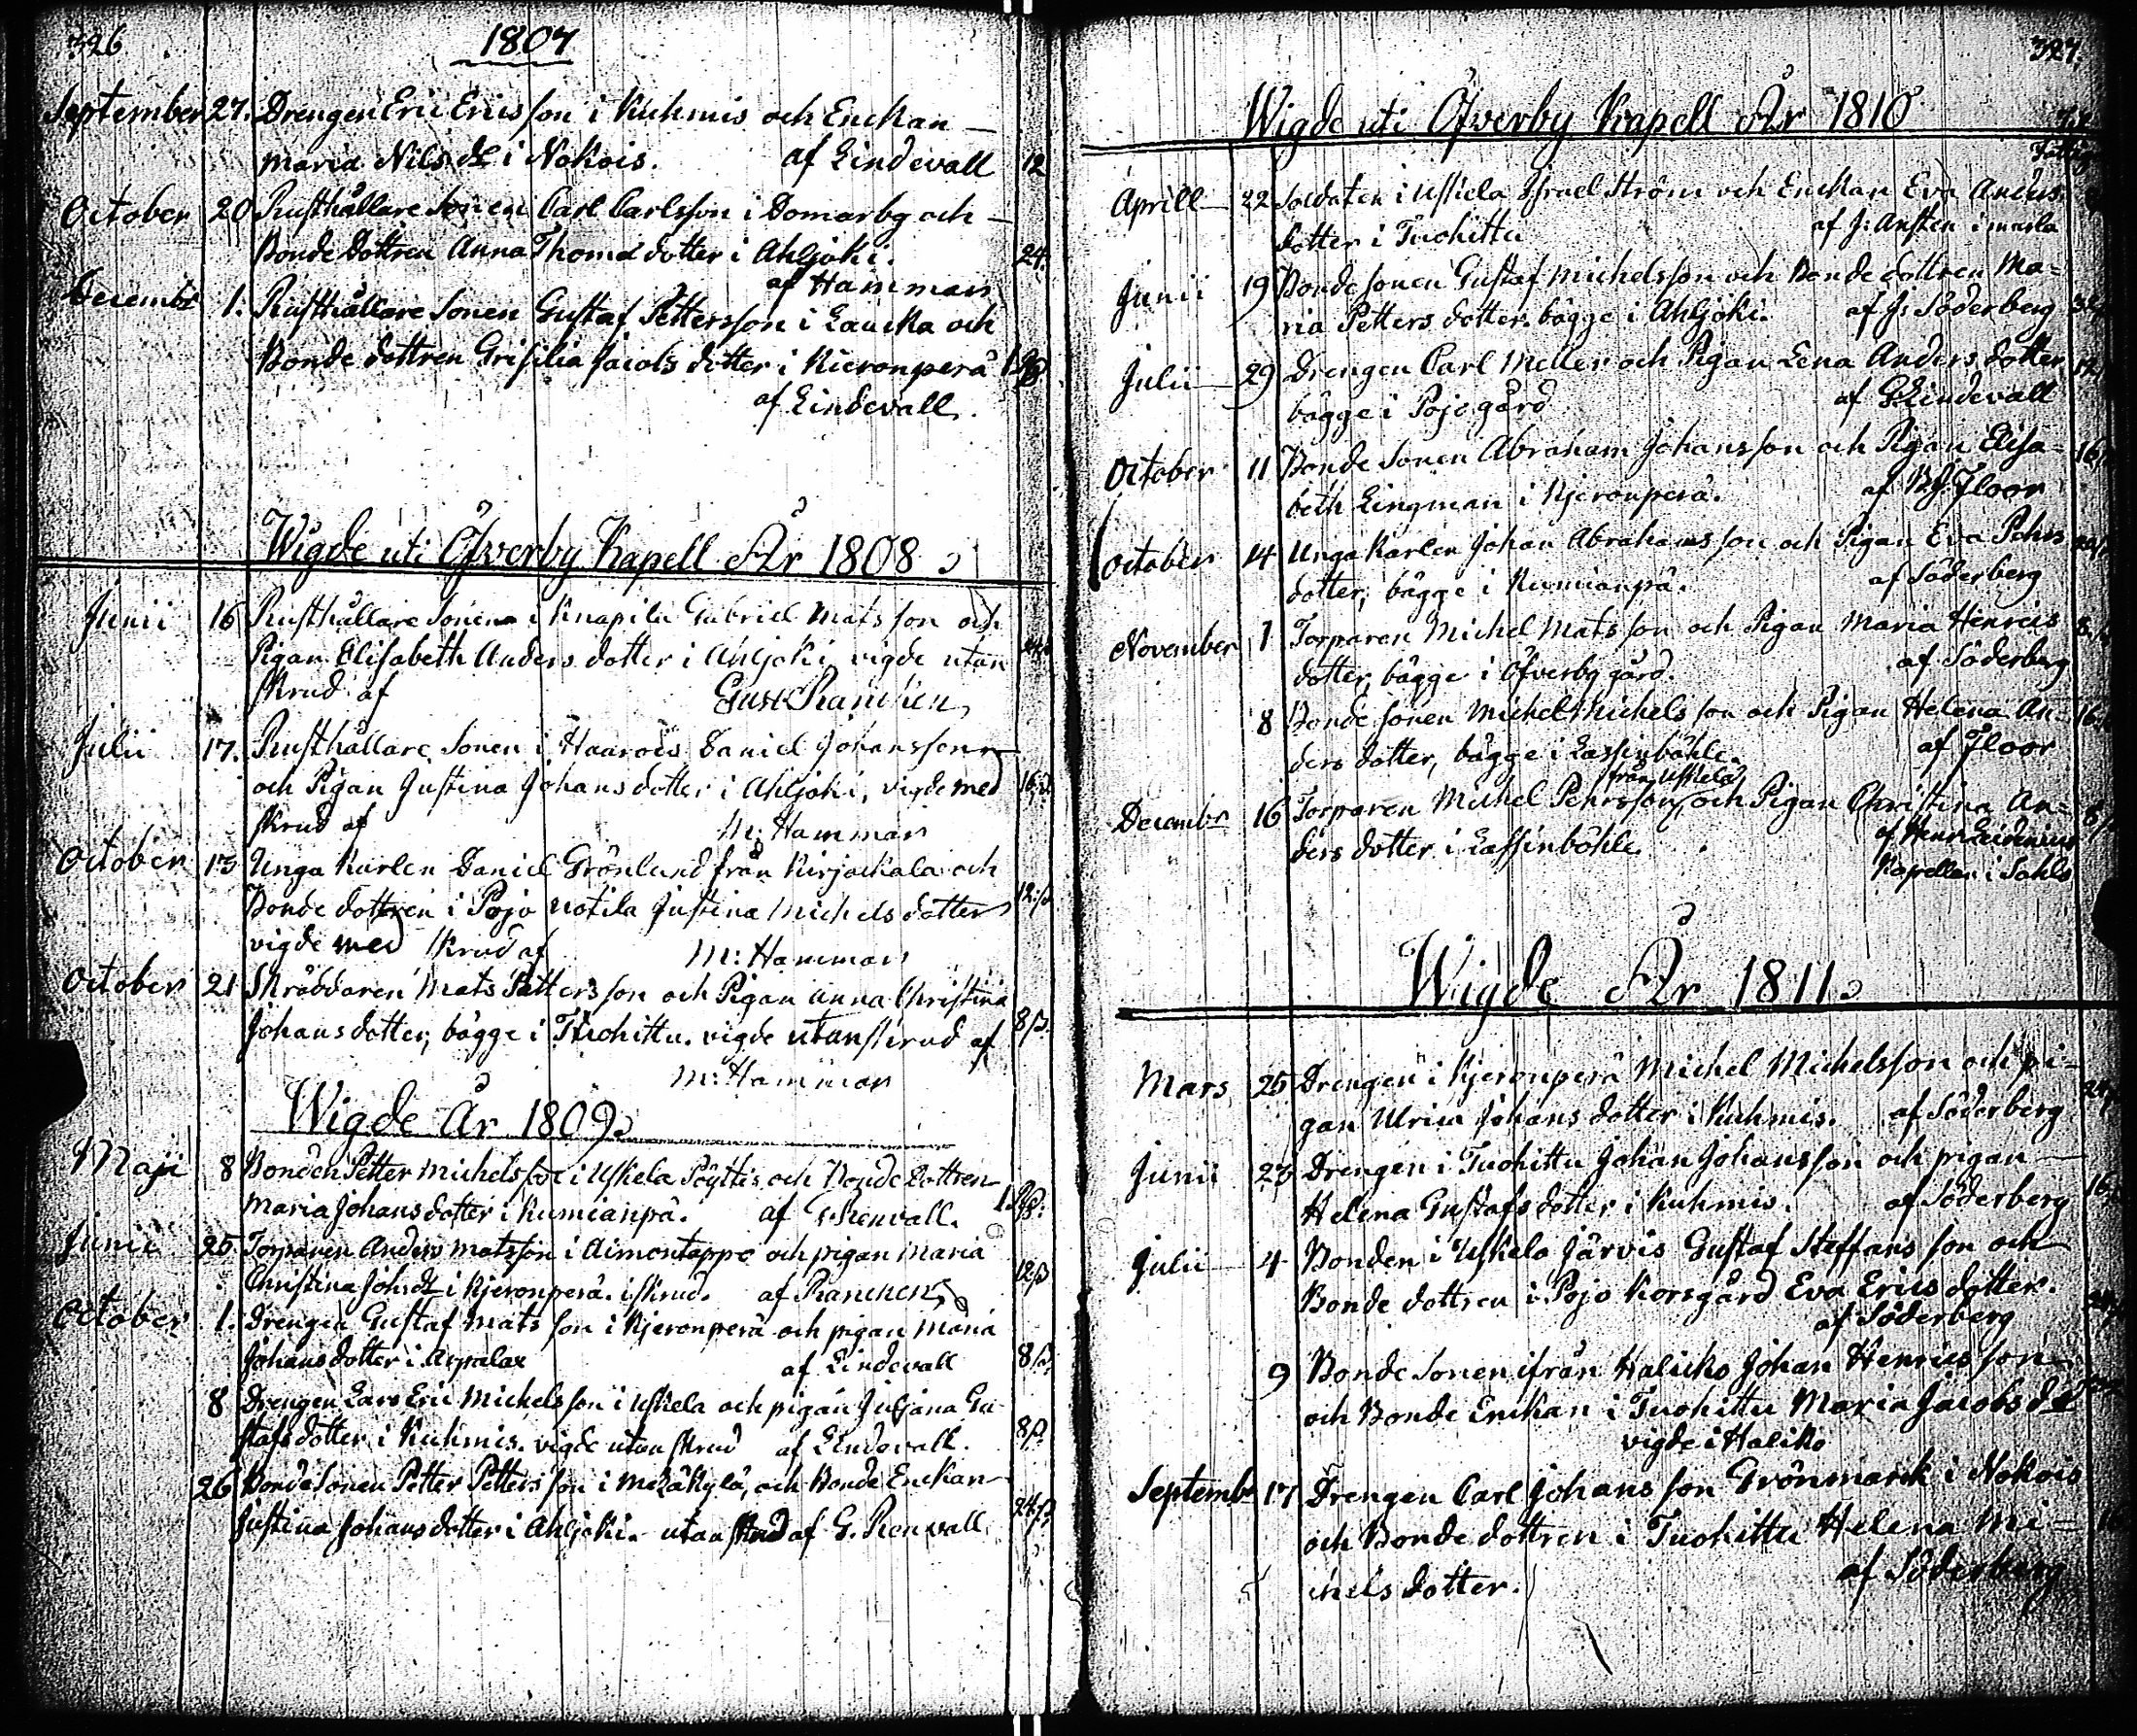 326
1807
September 27. Drengen Eric Ericsson i Kuhmis och Enckan
Maria Nils dr i Nokois. af Lindevall 12
October 20 Rusthållare Sonen Carl Carlsson i Domarby och
Bonde dottren Anna Thomæ dotter i Ahljoki. 24.
af Hammar
Decembr 1. Rusthållare Sonen Gustaf Pettersson i Laucka och
Bonde dottren Grisilia Jacobs dotter i Kieronperä
af Lindevall.
Wigde uti Öfverby Kapell År 1808
Junii 16 Rusthållare Sonen i Knapila Gabriel Matsson och
Pigan Elisabeth Anders dotter i Ahljoki vigde utan
skrud af
Julii 17. Rusthållare Sonen i Haarois Daniel Johansson
och Pigan Justina Johans dotter i Ahljoki, vigde med 16
skrud af M: Hammar
October 13 Unga Karlen Daniel Grönlund från Kirjackala och
Bonde dottren i Pojo Notila Justina Michels dotter 12 ß
vigde med skrud af M: Hammar
October 21 Skräddaren Mats Pettersson och Pigan Anna Christina
Johans dotter, bägge i Tuohittu. vigde utan skrud af 8 ß.
M: Hammar
Wigde År 1809
Maji 8 Bonden Petter Michelsson i Uskela Pöytis och Bonde dottren
Maria Johans dotter i Kumianpä. af Renvall.
Junii 25 Torparen Anders Matsson i Aimontappo och pigan Maria
Christina Johs dr i Kjeronperä. i skrud. af Rancken 12 ß
October 1. Drengen Gustaf Matsson i Kjeronperä och pigan Maria
Johans dotter i Arpalax af Lindevall 8 ß
8 Drengen Lars Eric Michelsson i Uskela och pigan Juliana Gu-
stafs dotter i Kuhmis. vigde utan skrud af Lindevall. 8 ß.
26 Bonde Sonen Petter Pettersson i och Bonde Enckan
Justina Johans dotter i Ahljoki. utan skrud af G. Renvall. 24 ß
327.
Wigde uti Öfverby Kapell År 1810
Aprill 22 Soldaten i Uskela Israel Ström och Enckan Eva Anders
dotter i Tuohittu af J:
Junii 19 Bonde sonen Gustaf Michelsson och Bonde dottren Ma=
ria Petters dotter. bägge i Ahljoki. af J: Söderberg
Julii 29 Drengen Carl Meller och Pigan Lena Anders dotter 12
bägge i Pojo gård af G Lindevall
October 11 Bonde Sonen Abraham Johansson och Pigan Elisa= 16
beth Lingman i Kjeronperä. af Floor
October 14 Unga Karlen Johan Abrahamsson och Pigan Eva Pehrs
dotter, bägge i Kumianpä. af Söderberg
November 1 Torparen Michel Matsson och Pigan Maria Henrics 8
dotter, bägge i Öfverby gård. af Söderberg
8 Bonde sonen Michel Michelsson och Pigan Helena An= 16
ders dotter, bägge i Lassinböhle. af Floor
från Uskela
Decembr 16 Torparen Michel Pehrsson, och Pigan Christina An= 8
ders dotter i Lassinböhle. af Henr Leidenius
Kapellan i Sahlo
Wigde År 1811
Mars 25 Drengen i Kjeronperä Michel Michelsson och pi=
gan Ulrica Johans dotter i Kuhmis. af Söderberg
Junii 23 Drengen i Tuohittu Johan Johansson och pigan
Helena Gustafs dotter i Kuhmis. af Söderberg 16
Julii 4 Bonden i Uskela Järvis Gustaf Staffansson och
Bonde dottren i Pojo Korsgård Eva Erics dotter.
af Söderberg
9 Bonde Sonen ifrån Halicko Johan Henricsson
och Bonde Enckan i Tuohittu Maria Jacobs dr
vigde i Haliko
Septembr 17 Drengen Carl Johansson Grönmarck i Nokois
och Bonde dottren i Tuohittu Helena Mi= 16
chels dotter. af Söderberg